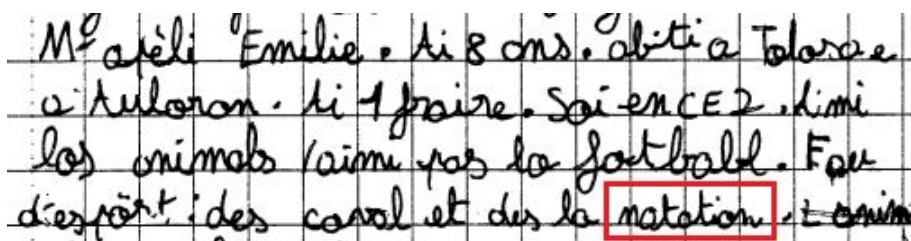 M' apèli Emilie. Ai 8 ans. abiti a Tolosa e
a Auloron. Ai 1 fraire. Soi en CE2. Aimi
los animals /aimi pas lo fotball. Fau
d'espòrt : des caval et des la natation.